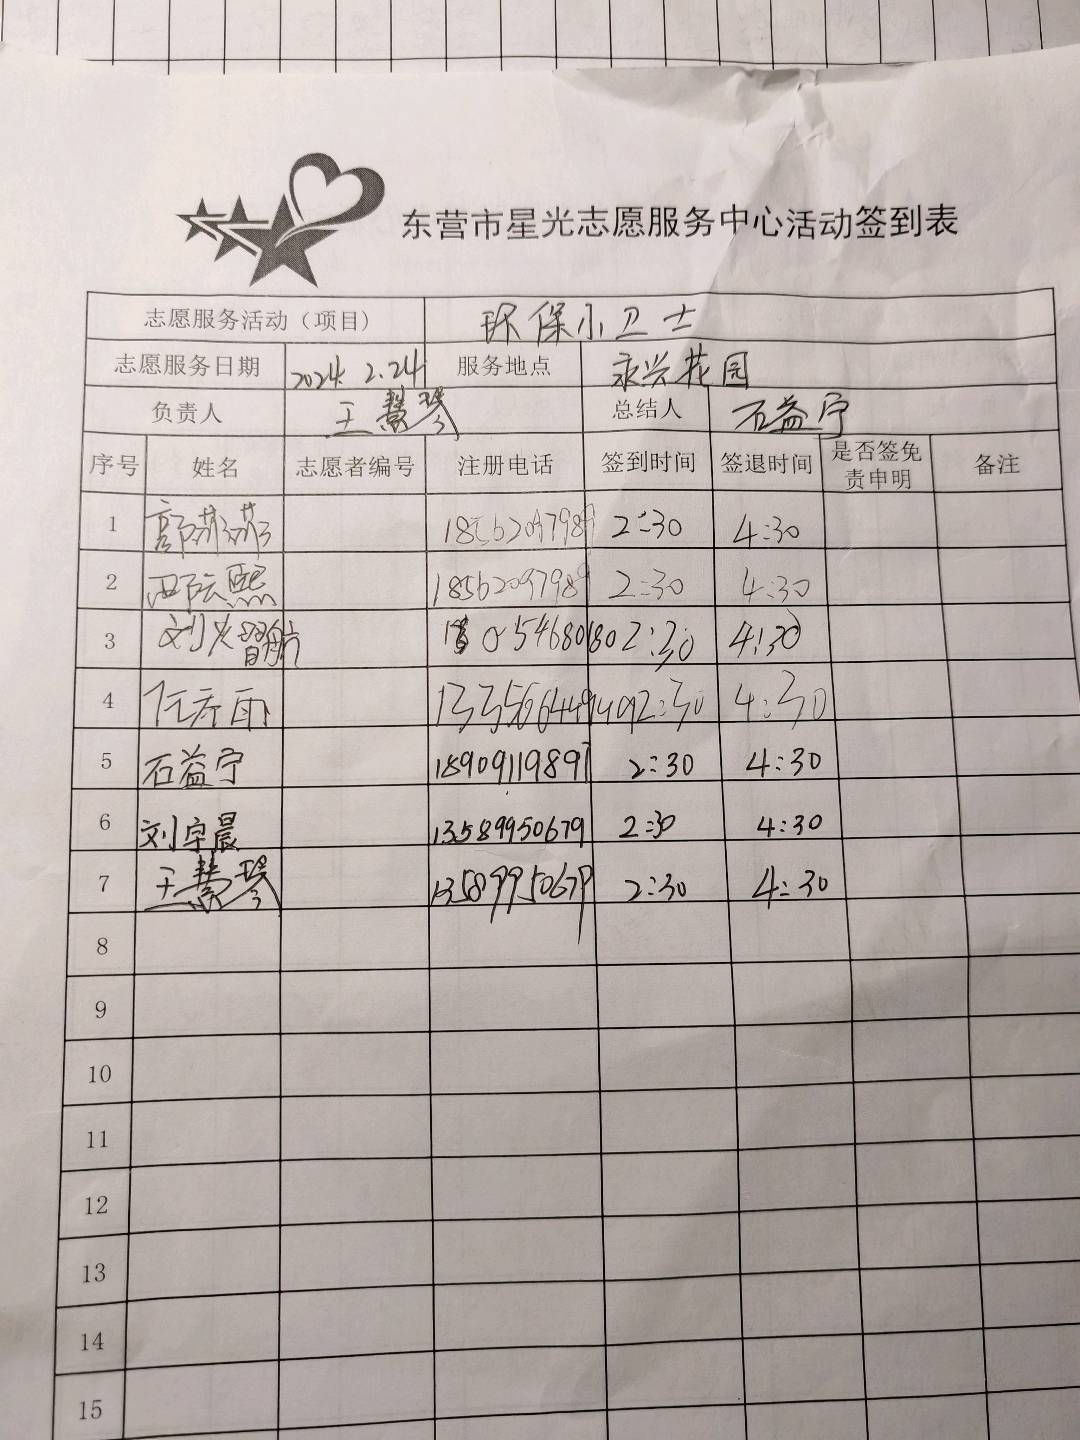 东营市星光志愿服务中心活动签到表
志愿服务活动（项目） 环保小卫士
志愿服务日期 2024.2.24 服务地点 永兴花园
负责人 王慧琴 总结人 石益宁
序号 姓名 志愿者编号 注册电话 签到时间 签退时间 是否签免责申明 备注
1 18562097989 2:30 4:30
2 18562097989 2:30 4:30
3 2:30 4:30
4 2:30 4:30
5 石益宁 18909119897 2:30 4:30
6 刘宇晨 13589950679 2:30 4:30
7 王慧琴 13589950679 2:30 4:30
8
9
10
11
12
13
14
15